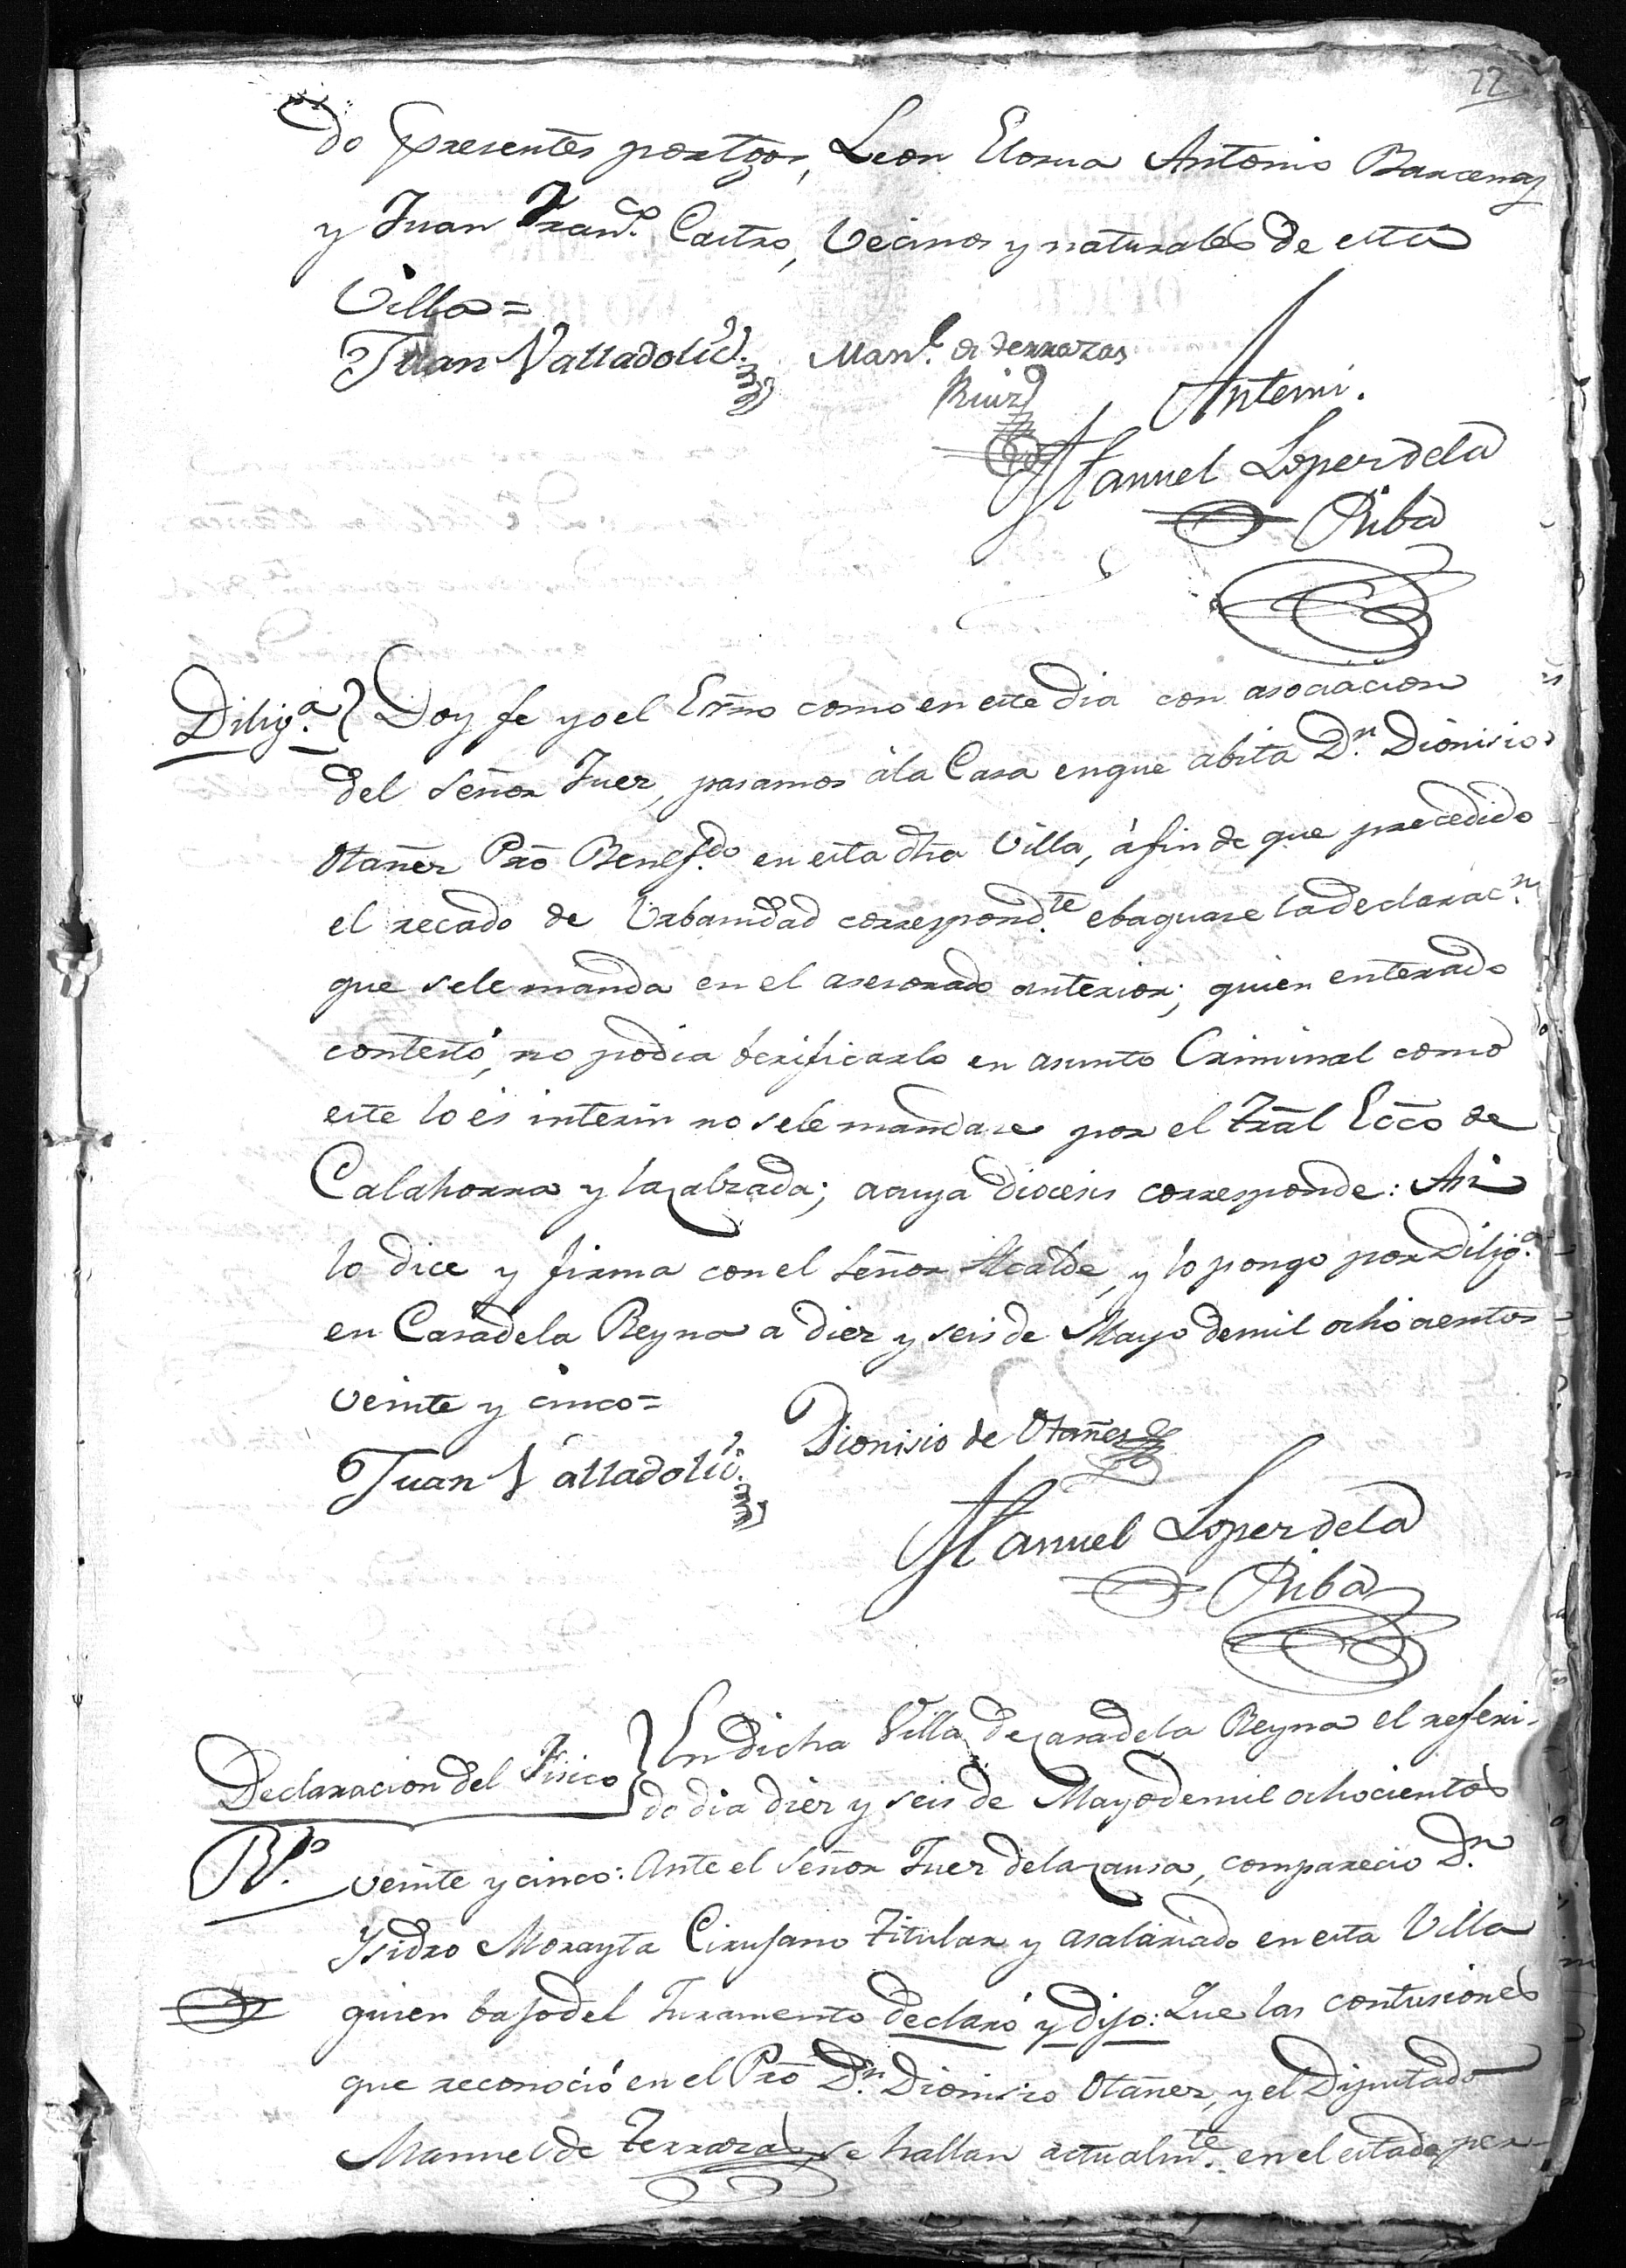 22
do presentes por tgos, Leon Elorua Antonio Barcenas
y Juan Fran.co Castro, Vecinos y naturales de esta
Villa=
Juan Valladolid. Man.l de terrazas
Ruiz
Antemi.
Manuel Lopez dela
Riba
Dilig.a Doy fe yo el Essno como en este dia con asociacion
del Señor Juez, pasamos ála Casa enque abita D.n Dionisio
Otañez Pro Benef.do en esta dha Villa, áfin de que precedido
el recado de Urbanidad correspond.te ebaquase ladeclarac.n
que sele manda en el asesorado anterior; quien enterado
contestó, no podia berificarlo en asunto Criminal como
este lo és interin no sele mandase por el Tral Ecco de
Calahorra y lacalzada; acuya diocesis corresponde: Asi
lo dice y firma con el Señor Alcalde, y lo pongo por Dilig.a
en Casadela Reyna a diez y seis de Mayo demil ochocientos
veinte y cinco=
Juan Valladolid. Dionisio de Otañez
Manuel Lopez dela
Riba
Declaracion del Fisico En dicha Villa de casadela Reyna el referi-
do dia diez y seis de Mayo demil ochocientos
veinte y cinco: Ante el Señor Juez dela causa, comparecio D.n
Ysidro Morayta Cirujano titular y asalariado en esta Villa
quien bajo del Juramento declaró y dijo: Que las contusiones
que reconoció en el Pro D.n Dionisio Otañez, y el Diputado
Manuel de Terrazas, se hallan actualm.te en el estado per-